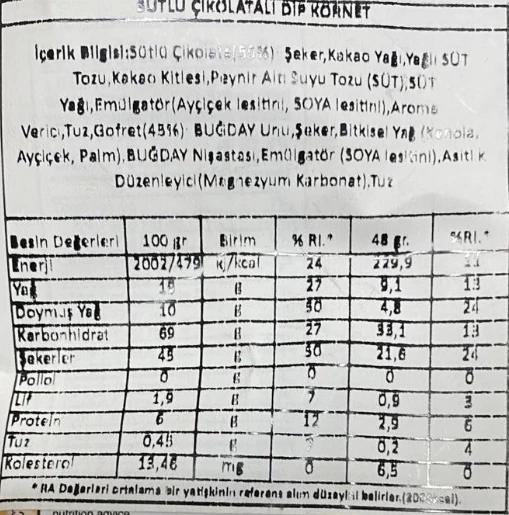 SÜTLÜ ÇİKOLATALI DİP KORNET
İçerik Bilgisi:Sütlü Çikolata(55%) Şeker,Kakao Yağı,Yağlı SÜT
Tozu,Kakao Kitlesi,Peynir Altı Suyu Tozu (SÜT),SÜT
Yağı,Emülgatör(Ayçiçek lesitini, SOYA lesitini),Aroma
Verici,Tuz,Gofret(45%) BUĞDAY Unu,Şeker,Bitkisel Yağ (Kanola,
Ayçiçek, Palm),BUĞDAY Nişastası,Emülgatör (SOYA lesitini),Asitlik
Düzenleyici(Magnezyum Karbonat),Tuz
Besin Değerleri 100 gr Birim % RI.* 48 gr. %RI.*
Enerji 2002/479 kj/kcal 24 229,9 11
Yağ 19 g 27 9,1 13
Doymuş Yağ 10 g 50 4,8 24
Karbonhidrat 69 g 27 33,1 13
Şekerler 45 g 50 21,6 24
Poliol 0 g 0 0 0
Lif 1,9 g 7 0,9 3
Protein 6 g 12 2,9 6
Tuz 0,45 g 0,2 4
Kolesterol 13,46 mg 0 6,5 0
* RA Değerleri ortalama bir yetişkinin referans alım düzeyi belirler.
nutrition advice